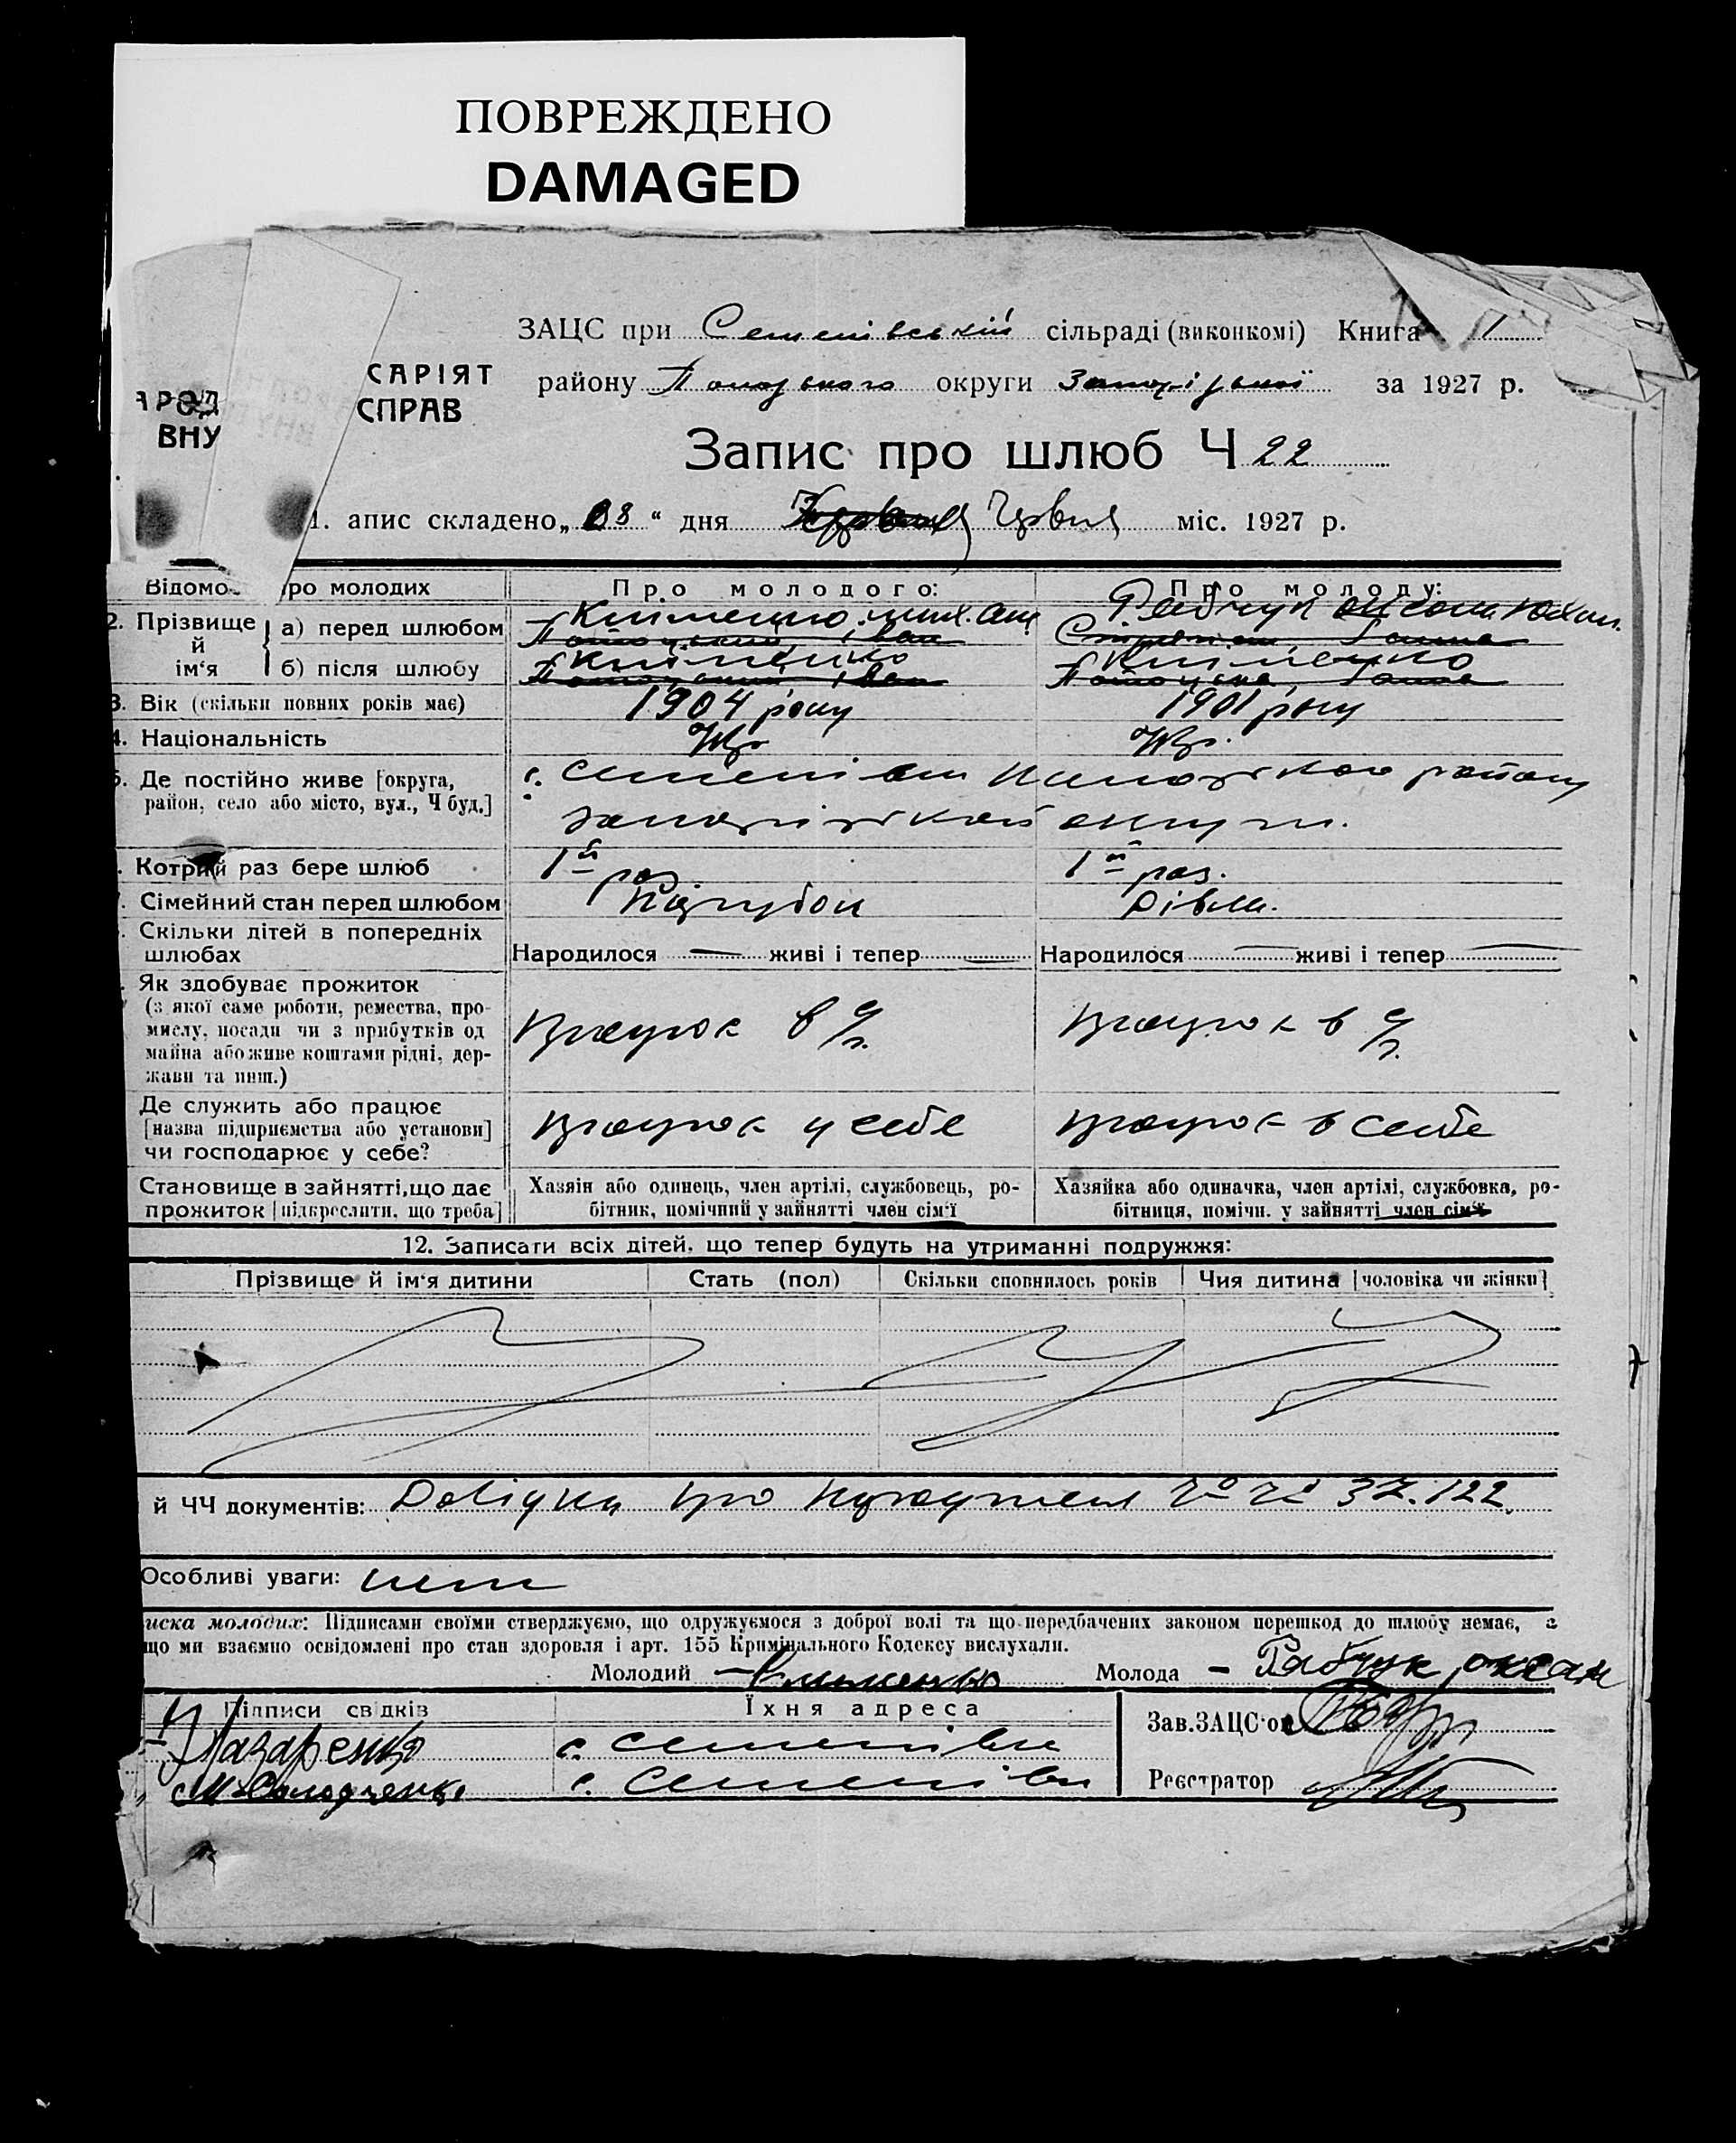 ПОВРЕЖДЕНО
DAMAGED
ЗАЦС при Семенівській сільраді (виконкомі) Книга 1
району округи Запорізької за 1927 р.
АРОД САРІЯТ
ВНУ СПРАВ
Запис про шлюб Ч 22
1. апис складено „ 8 “ дня Червня міс. 1927 р.
Відомо про молодих Про молодого: Про молоду:
2. Прізвище й ім‘я а) перед шлюбом Клименко Рабчук
б) після шлюбу Кліменко Кліменко
3. Вік (скільки повних років має) 1904 року 1901 року
4. Національність Укр Укр.
5. Де постійно живе [округа, район, село або місто, вул., Ч буд.] с. Семенівки району
округи.
Котрий раз бере шлюб 1й раз 1й раз.
Сімейний стан перед шлюбом Парубок Дівка.
Скільки дітей в попередніх шлюбах Народилося — живі і тепер — Народилося — живі і тепер —
Як здобуває прожиток
(з якої саме роботи, ремества, про-
мислу, посади чи з прибутків од
майна або живе коштами рідні, дер-
жави та инш.)
Працює в с/г. Працює в с/г.
Де служить або працює
[назва підприємства або установи]
чи господарює у себе?
Працює у себе Працює в себе
Становище в зайнятті, що дає
прожиток [підкреслити, що треба]
Хазяїн або одинець, член артілі, службовець, ро-
бітник, помічний у зайнятті член сім‘ї
Хазяйка або одиначка, член артілі, службовка, ро-
бітниця, помічн. у зайнятті член сім‘ї
12. Записати всіх дітей, що тепер будуть на утриманні подружжя:
Прізвище й ім‘я дитини Стать (пол) Скільки сповнилось років Чия дитина [чоловіка чи жінки]
й ЧЧ документів: Довідки про 37. 122.
Особливі уваги:
иска молодих: Підписами своїми стверджуємо, що одружуємося з доброї волі та що передбачених законом перешкод до шлюбу немає, а
що ми взаємно освідомлені про стан здоровля і арт. 155 Кримінального Кодексу вислухали.
Молодий — Клименко Молода — Рабчук оксан
Підписи свідків Їхня адреса Зав. ЗАЦС‘ом
Назаренко с. Семенівки
М Солодченко с. Семенівки Реєстратор